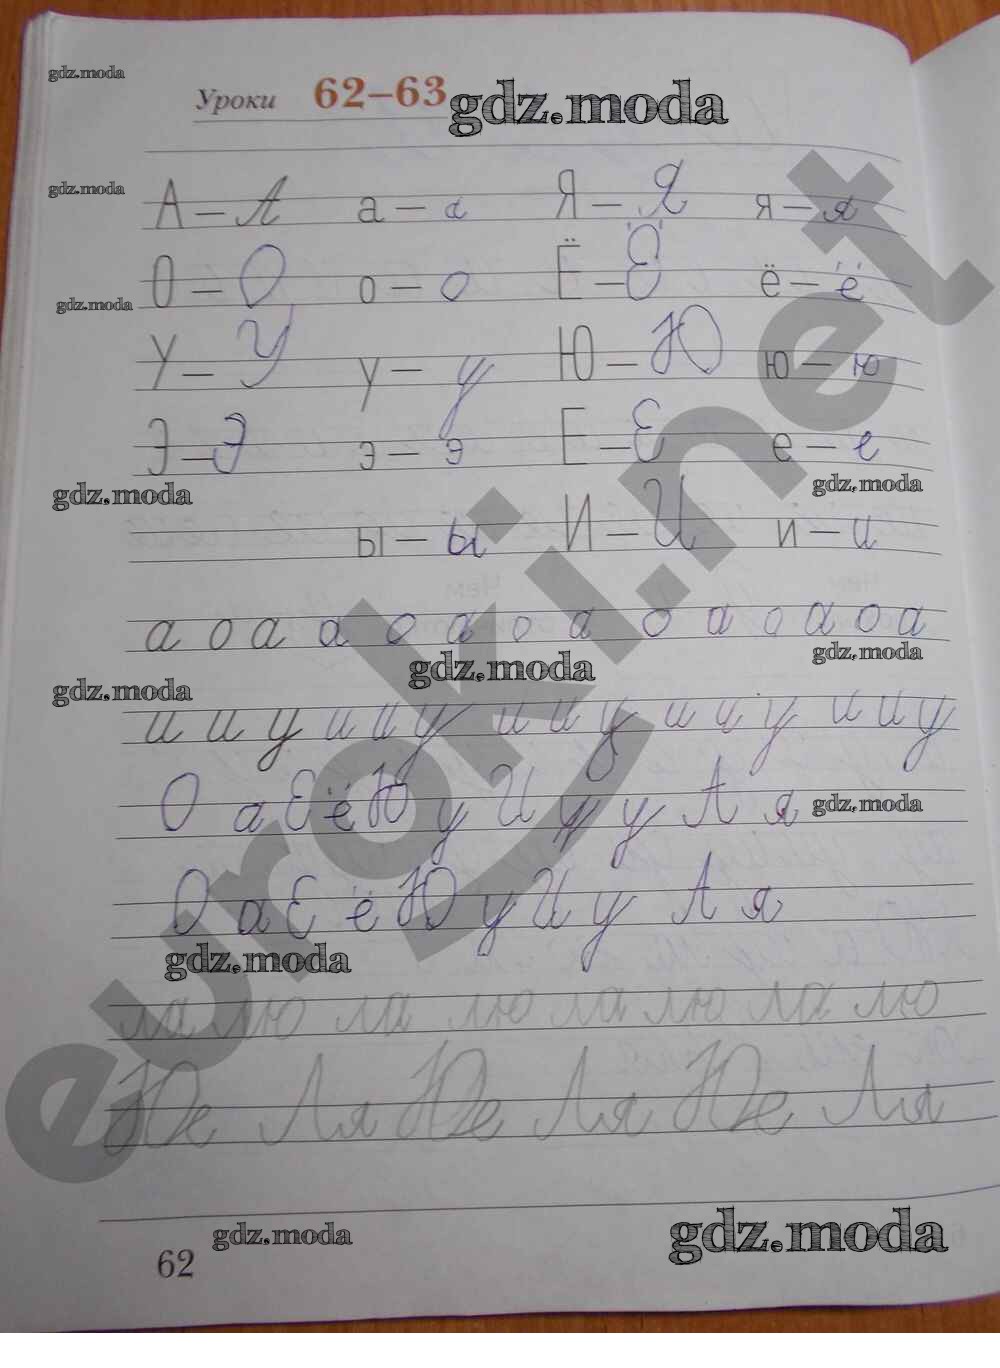 gdz.moda
Уроки 62–63 gdz.moda
gdz.moda
А – А а – а Я – Я я – я
О – О о – о Ё – Ё ё – ё
gdz.moda
У – У у – у Ю – Ю ю – ю
Э – Э э – э Е – Е е – е
gdz.moda gdz.moda
ы – ы И – И и – и
а о а а о а о а о а о а о а
gdz.moda gdz.moda
gdz.moda
и и у и и у и и у и и у и и у
О а Е ё Ю у И у у А я gdz.moda
О а Е ё Ю у И у А я
gdz.moda
ла лю ла лю ла лю ла лю
Юе Ля Юе Ля Юе Ля
gdz.moda gdz.moda
62
euroki.net